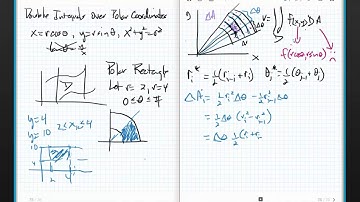 Double Integrals Over Polar Coordinates
x = r cosθ, y = r sinθ, x²+y²=r²
Polar Rectangle
Let r = 2, r = 4
0 ≤ θ ≤ π
y = 4
y = 10
2 ≤ x ≤ 4
10
4
2 4
ΔA
Δθ
f(x,y) dA
f(r cosθ, r sinθ)
x
r_i* = ½(r_{i-1} + r_i) θ_i* = ½(θ_{j-1} + θ_j)
ΔA_i = ½ r_i² Δθ - ½ r_{i-1}² Δθ
= ½ Δθ (r_i² - r_{i-1}²)
= Δθ ½ (r_i + r_{i-